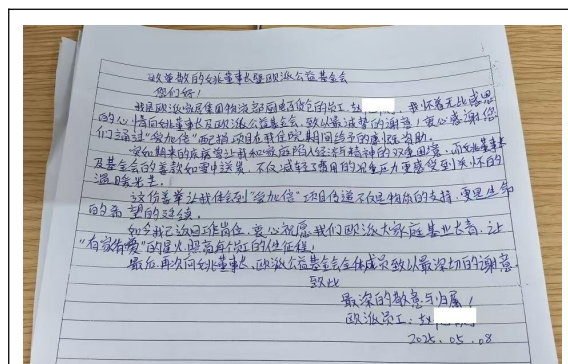 致尊敬的姚董事长暨欧派公益基金会
您们好！
我是欧派家居集团物流部厨电子仓的员工赵 我怀着无比感恩
的心情向姚董事长及欧派公益基金会，致以最诚挚的谢意！衷心感谢您
们通过“爱加倍”配捐项目在我住院期间给予的慷慨资助。
突如其来的疾病曾让我和家庭陷入经济与精神的双重困境，而姚董事长
及基金会的善款如雪中送炭，不仅减轻了费用的压力更感受到关怀的
温暖光芒。
这份善举让我体会到“爱加倍”项目传递不仅是物质的支持，更是生命
的希望的延续。
如今我已返回工作岗位，衷心祝愿我们欧派大家庭基业长青，让
“有家有爱”的星火照亮每个员工的征程！
最后再次向姚董事长、欧派公益基金会全体成员致以最深切的谢意。
致此
最深的敬意与归属！
欧派员工：赵
2025.05.08